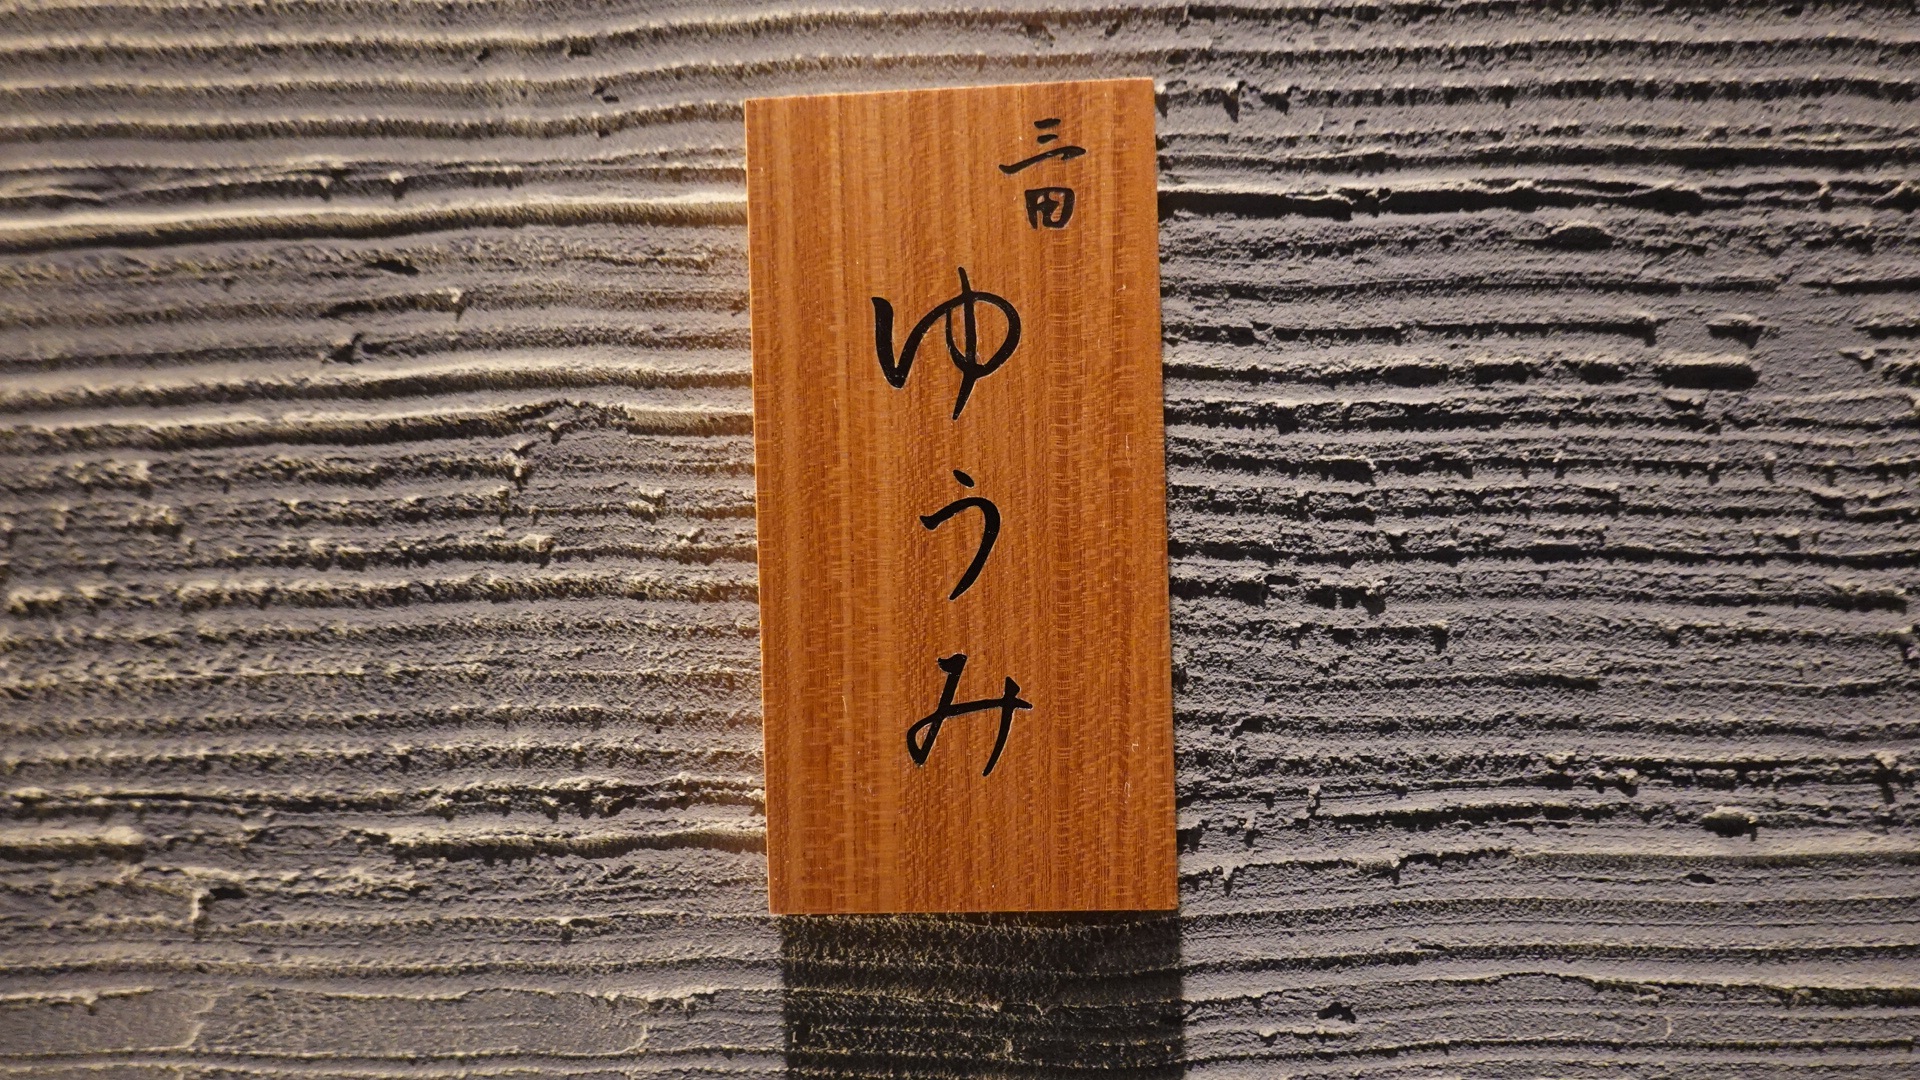 三田
ゆうみ